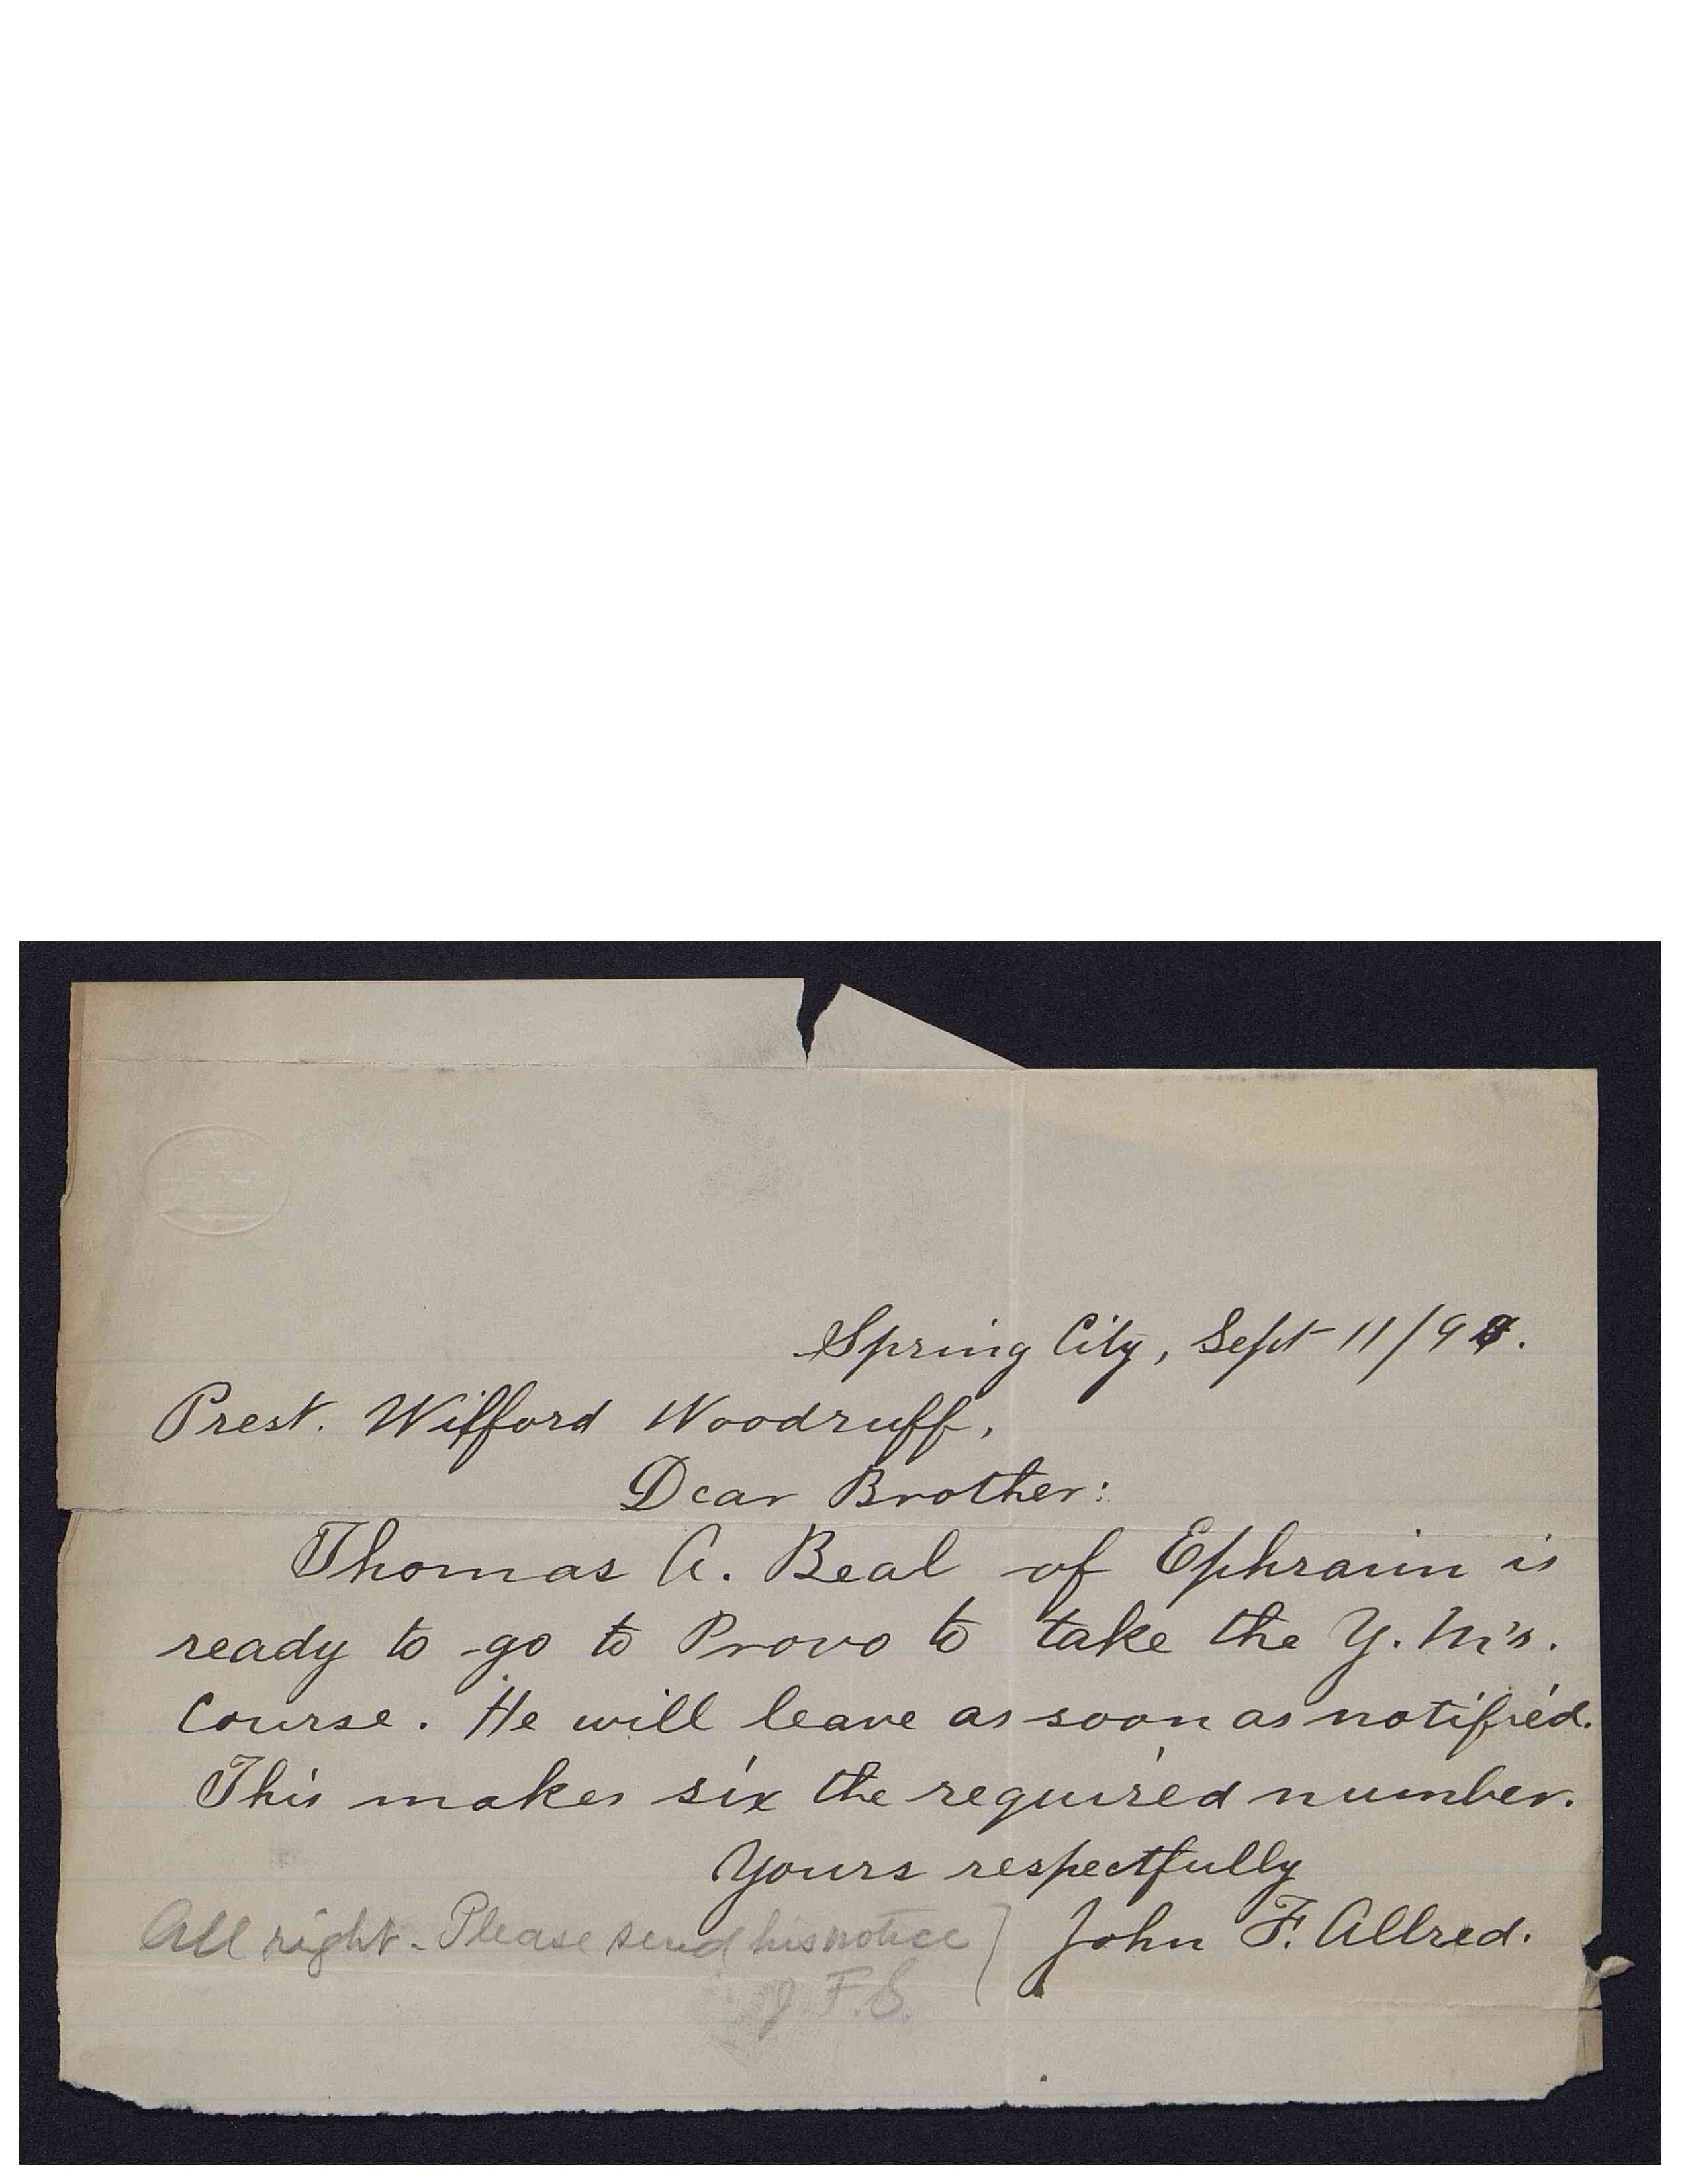 Spring City, Sept 11/98.
Prest. Wilford Woodruff,
Dear Brother:
Thomas A. Beal of Ephraim is
ready to go to Provo to take the Y. M's.
Course. He will leave as soon as notified.
This makes six the required number.
Yours respectfully
John F. Allred.
All right. Please send his notice
J. F. S.